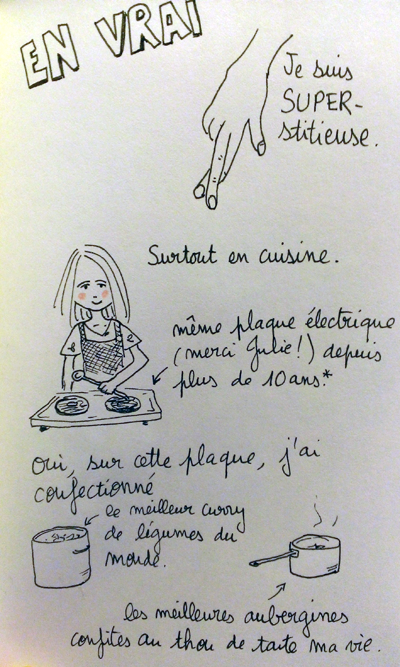 EN VRAI
Je suis
SUPER-
stitieuse.
Surtout en cuisine.
même plaque électrique
(merci Julie!) depuis
plus de 10 ans.*
Oui, sur cette plaque, j'ai
confectionné
le meilleur curry
de légumes du
monde.
les meilleures aubergines
confites au thon de toute ma vie.